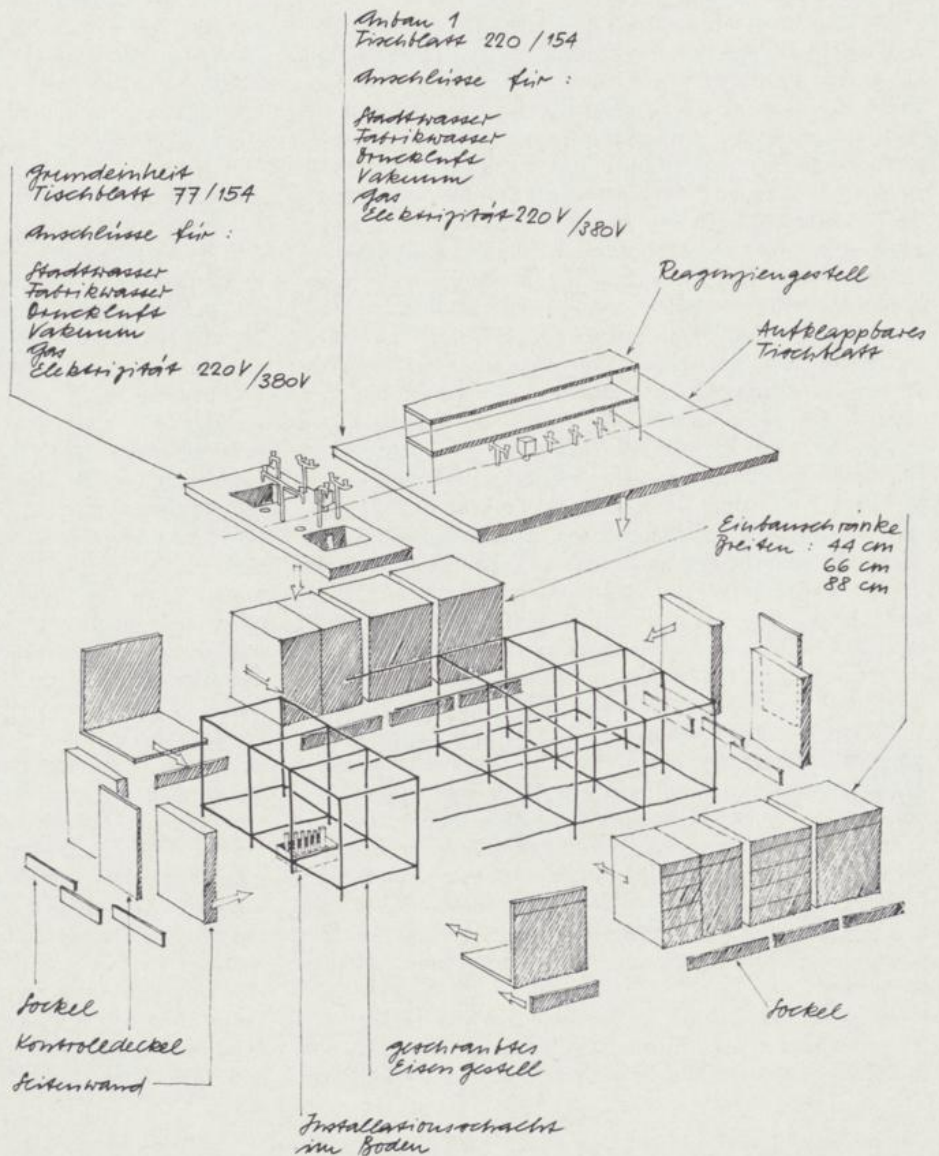 Anbau 1
Tischblatt 220/154
Anschlüsse für:
Stadtwasser
Fabrikwasser
Druckluft
Vakuum
Gas
Elektrizität 220V/380V
Grundeinheit
Tischblatt 77/154
Anschlüsse für:
Stadtwasser
Fabrikwasser
Druckluft
Vakuum
Gas
Elektrizität 220V/380V
Reagenziengestell
Aufklappbares
Tischblatt
Einbauschränke
Breiten: 44 cm
66 cm
88 cm
Sockel
Kontrolldeckel
Seitenwand
geschraubtes
Eisengestell
Installationsschacht
im Boden
Sockel